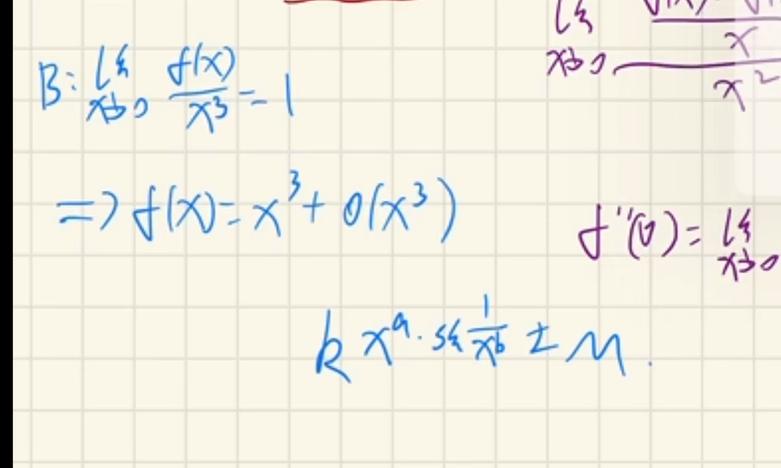 B: lim x→0 f(x)/x³ = 1
=> f(x) = x³ + o(x³)
k x^a · sin 1/x^b ± m.
lim x→0
x
x²
f''(0) = lim x→0